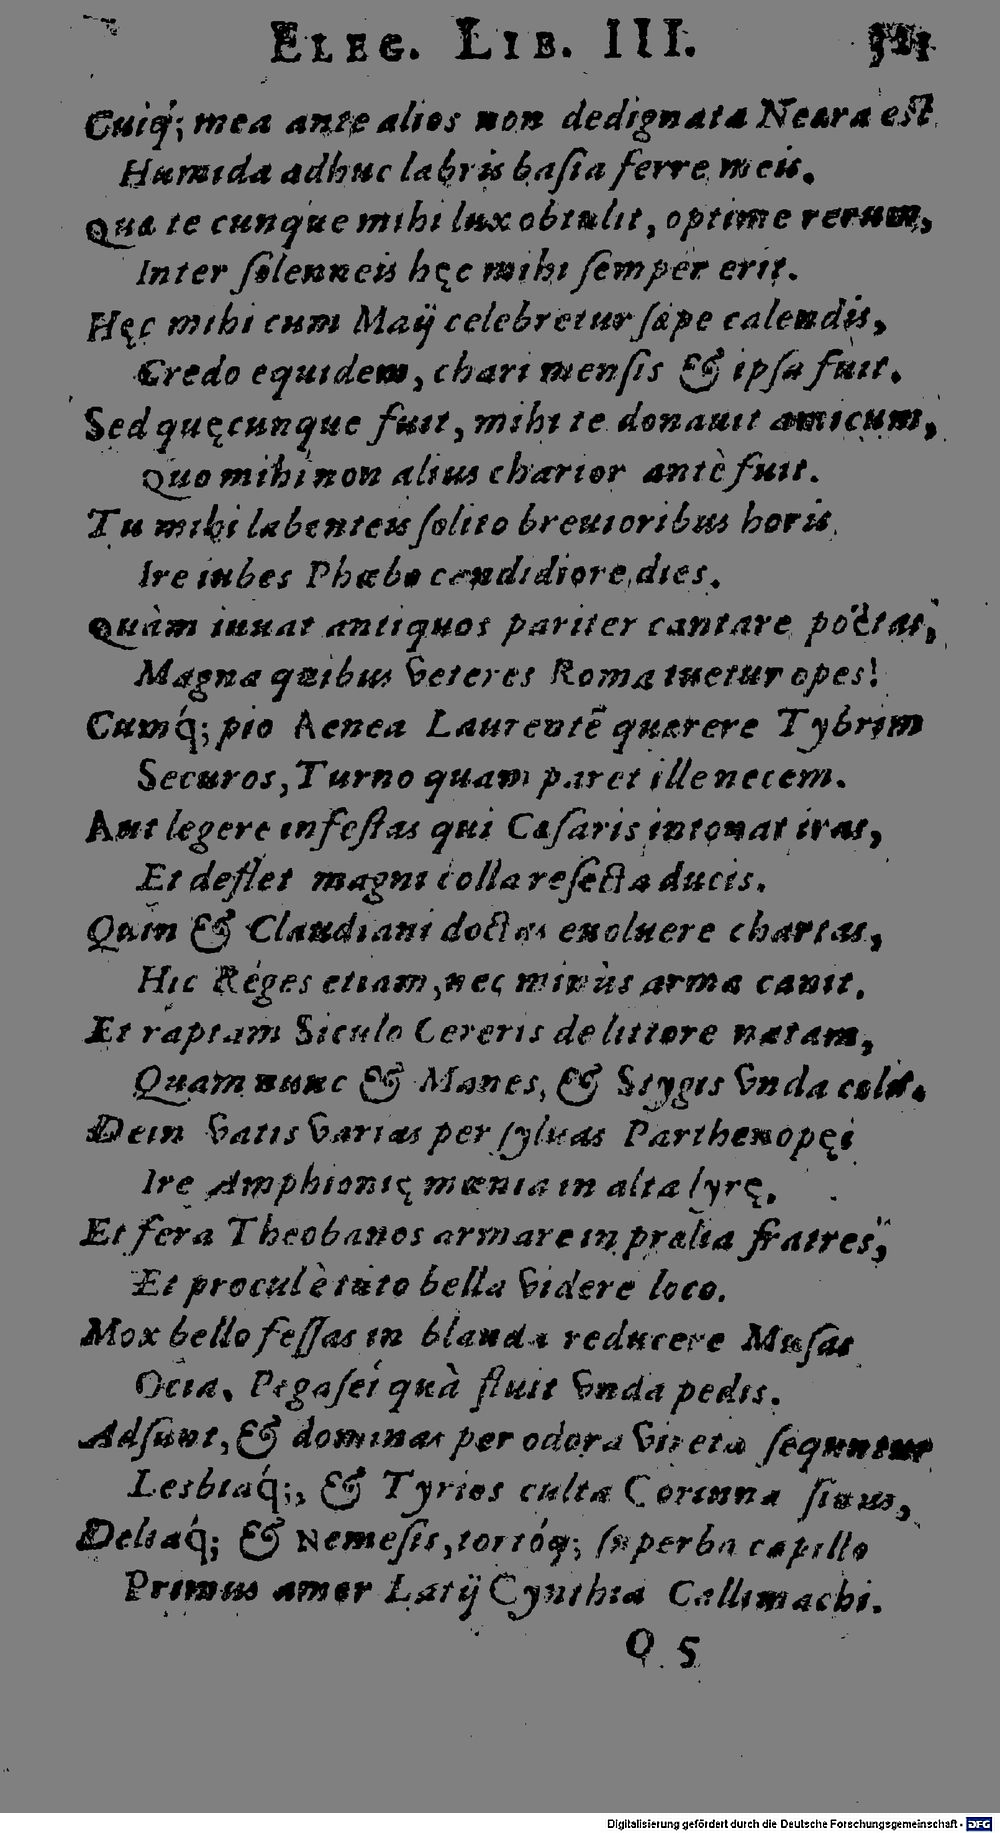 ELEG. LIB. III.
Cuiq́; mea ante alios non dedignata Neæra est
Humida adhuc labris basia ferre meis.
Qua te cunque mihi lux obtulit, optime rerum,
Inter solenneis hęc mihi semper erit.
Hęc mihi cum Maij celebretur sæpe calendis,
Credo equidem, chari mensis & ipsa fuit.
Sed quęcunque fuit, mihi te donauit amicum,
Quo mihi non alius charior antè fuit.
Tu mihi labenteis solito breuioribus horis
Ire iubes Phœbo candidiore, dies.
Quàm iuuat antiquos pariter cantare poëtas,
Magna quibus veteres Roma tuetur opes!
Cumq́; pio Aenea Laurentẽ quærere Tybrim
Securos, Turno quam paret ille necem.
Aut legere infestas qui Cæsaris intonat iras,
Et deflet magni colla resecta ducis.
Quin & Claudiani doctas euoluere chartas,
Hic Réges etiam, nec minùs arma canit.
Et raptam Siculo Cereris de littore natam,
Quam nunc & Manes, & Stygis vnda colit.
Dein vatis varias per syluas Parthenopęi
Ire Amphionię mœnia in alta lyrę.
Et fera Theobanos armare in prælia fratres,
Et procul è tuto bella videre loco.
Mox bello fessas in blanda reducere Musas
Ocia. Pegasei quà fluit vnda pedis.
Adsunt, & dominas per odora vireta sequuntur
Lesbiaq́;, & Tyrios culta Corinna sinus,
Deliaq́; & Nemesis, tortóq; superba capillo
Primus amor Latij Cynthia Callimachi.
Q 5
Digitalisierung gefördert durch die Deutsche Forschungsgemeinschaft - DFG